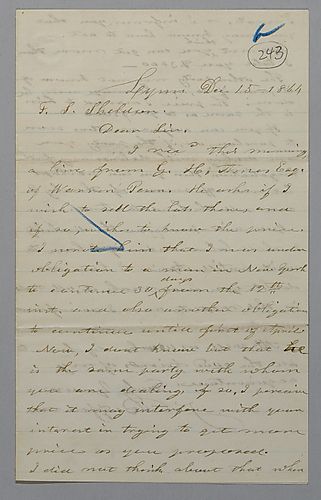 243
Lynn Dec 15 - 1864
F. S. Sheldon
Dear Sir,
I recd this morning
a line from G. H. Esq.
of Warren Penn. He asks if I
wish to sell the lots there, and
if so, wishes to know the price.
I wrote him that I was under
obligation to a man in New York
days
to continue 30, from the 12th
inst. and also another obligation
to continue untill first of April
Now, I dont know but that he
is the same party with whom
you are dealing, if so, I perceive
that it may interfere with your
interest in trying to get more
price as you proposed.
I did not think about that when